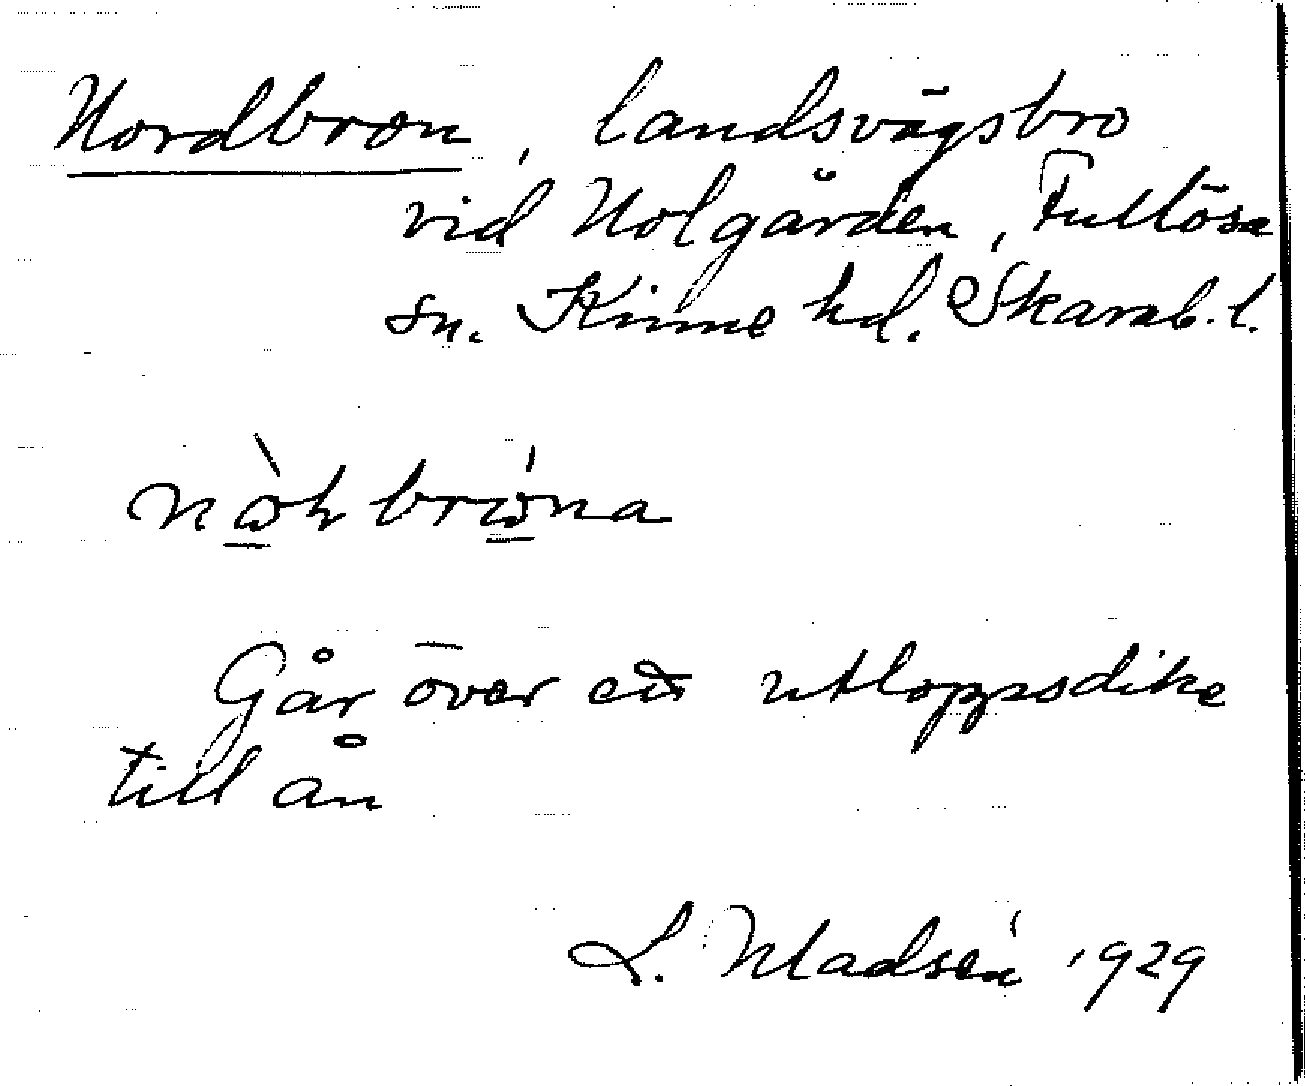 Nordbron, landsvägsbro
vid Nolgården, Fullösa
sn. Kinne hd. Skarab. l.
Går över ett utloppsdike
till ån
L. Madsén 1929